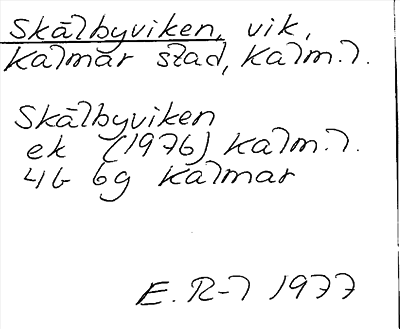 Skälbyviken, vik,
Kalmar stad, Kalm.l.
Skälbyviken
ek (1976) Kalm.l.
4G 6g Kalmar
E. R-l 1977